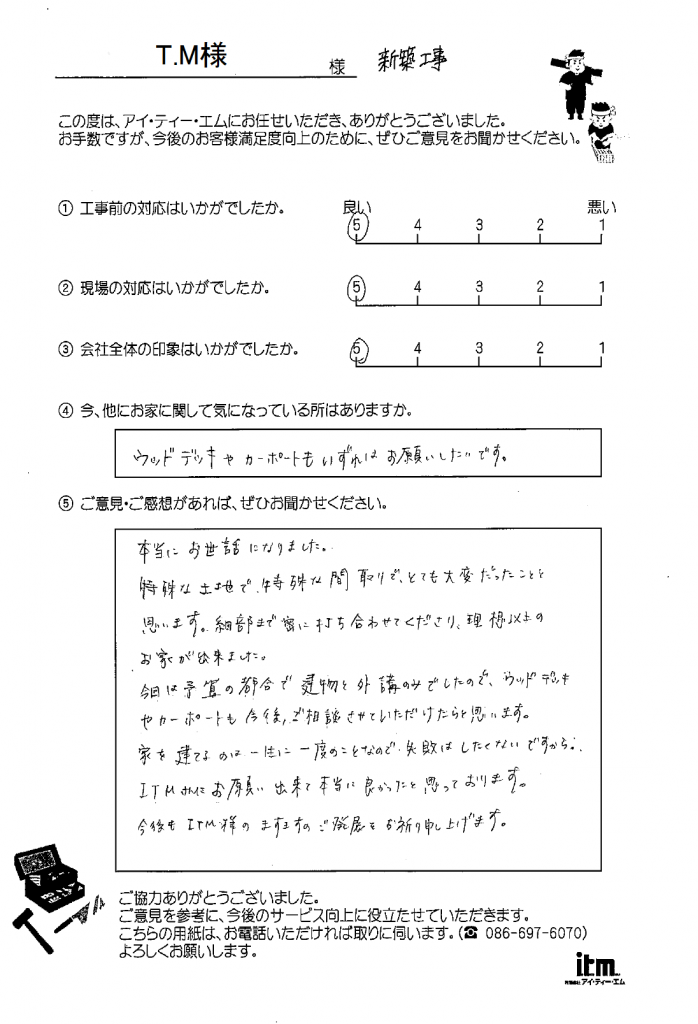 T.M様
様 新築工事
この度は、アイ・ティー・エムにお任せいただき、ありがとうございました。
お手数ですが、今後のお客様満足度向上のために、ぜひご意見をお聞かせください。
① 工事前の対応はいかがでしたか。
良い 悪い
5 4 3 2 1
② 現場の対応はいかがでしたか。
5 4 3 2 1
③ 会社全体の印象はいかがでしたか。
5 4 3 2 1
④ 今、他にお家に関して気になっている所はありますか。
ウッドデッキやカーポートもいずれはお願いしたいです。
⑤ ご意見・ご感想があれば、ぜひお聞かせください。
本当にお世話になりました。
特殊な土地で、特殊な間取りで、とても大変だったことと
思います。細部まで密に打ち合わせてくださり、理想以上の
お家が出来ました。
今回は予算の都合で建物と外講のみでしたので、ウッドデッキ
やカーポートも今後、ご相談させていただけたらと思います。
家を建てるのは一生に一度のことなので、失敗はしたくないですから、
ITMさんにお願い出来て本当に良かったと思っております。
今後もITM様のますますのご発展をお祈り申し上げます。
ご協力ありがとうございました。
ご意見を参考に、今後のサービス向上に役立たせていただきます。
こちらの用紙は、お電話いただければ取りに伺います。(☎ 086-697-6070)
よろしくお願いします。
itm
有限会社アイ・ティー・エム